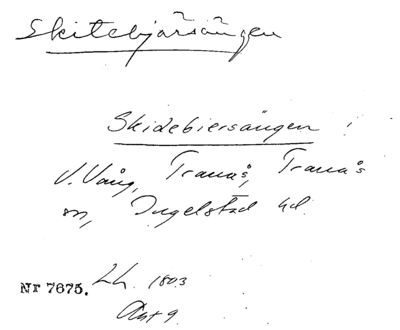 Skitebjärsängen
Skidebiersängen
V. Vång, Tranås, Tranås
sn, Ingelstad hd.
Nr 7675. LL. 1803
Akt 9.